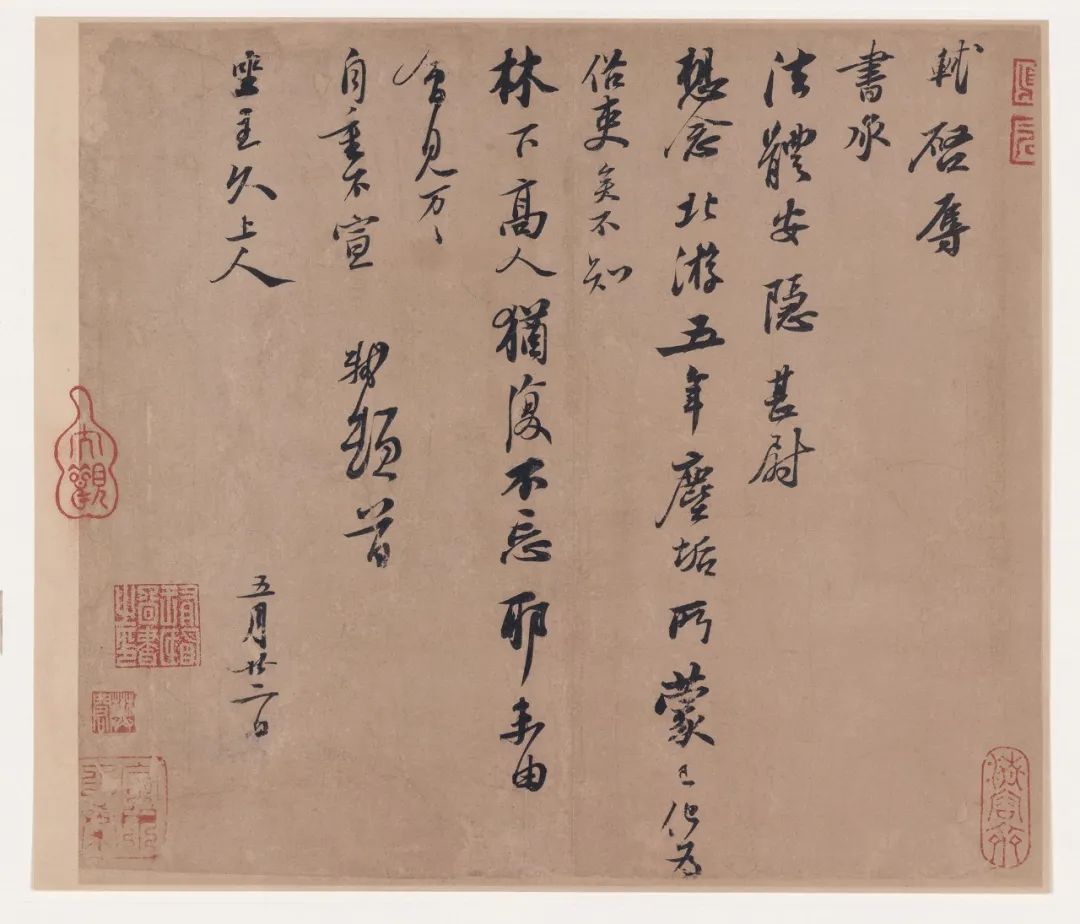 軾啓辱
書承
法體安隱甚尉
想念北游五年塵垢所蒙已化為
俗吏矣不知
林下高人猶復不忘耶未由
會見万〻
自重不宣　軾頓首
坐主久上人
五月廿二日
大觀